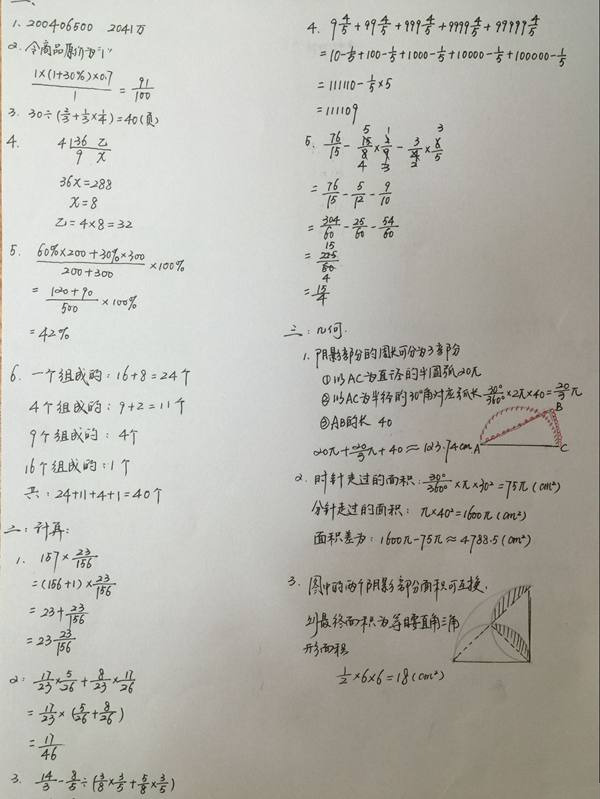 一、
1. 200406500 2041万
2. 令商品原价为"1"
1×(1+30%)×0.7/1 = 91/100
3. 30÷(2/3+1/3×1/4)=40(页)
4. 4|36 乙
9 x
36x=288
x=8
乙=4×8=32
5. 60%×200+30%×300/200+300 ×100%
= 120+90/500 ×100%
=42%
6. 一个组成的：16+8=24个
4个组成的：9+2=11个
9个组成的：4个
16个组成的：1个
共：24+11+4+1=40个
二：计算：
1. 157×23/156
=(156+1)×23/156
=23+23/156
=23 23/156
2: 17/23×5/26+8/23×17/26
=17/23×(5/26+8/26)
=17/46
3. 14/3-8/5÷(3/8×3/5+5/8×3/5)
4. 9 4/5+99 4/5+999 4/5+9999 4/5+99999 4/5
=10-1/5+100-1/5+1000-1/5+10000-1/5+100000-1/5
=111110-1/5×5
=111109
=76/15-5/12-9/10
=304/60-25/60-54/60
=15/4
三：几何.
1. 阴影部分的周长可分为3部分
①以AC为直径的半圆弧20π
②以AC为半径的30°角对应弧长 30°/360°×2π×40=20/3π
③AB的长 40
20π+20/3π+40≈123.74cm
A B C
2. 时针走过的面积：30°/360°×π×30²=75π(cm²)
分针走过的面积：π×40²=1600π(cm²)
面积差为：1600π-75π≈4788.5(cm²)
3. 图中的两个阴影部分面积可互换.
则最终面积为等腰直角三角
形面积
1/2×6×6=18(cm²)